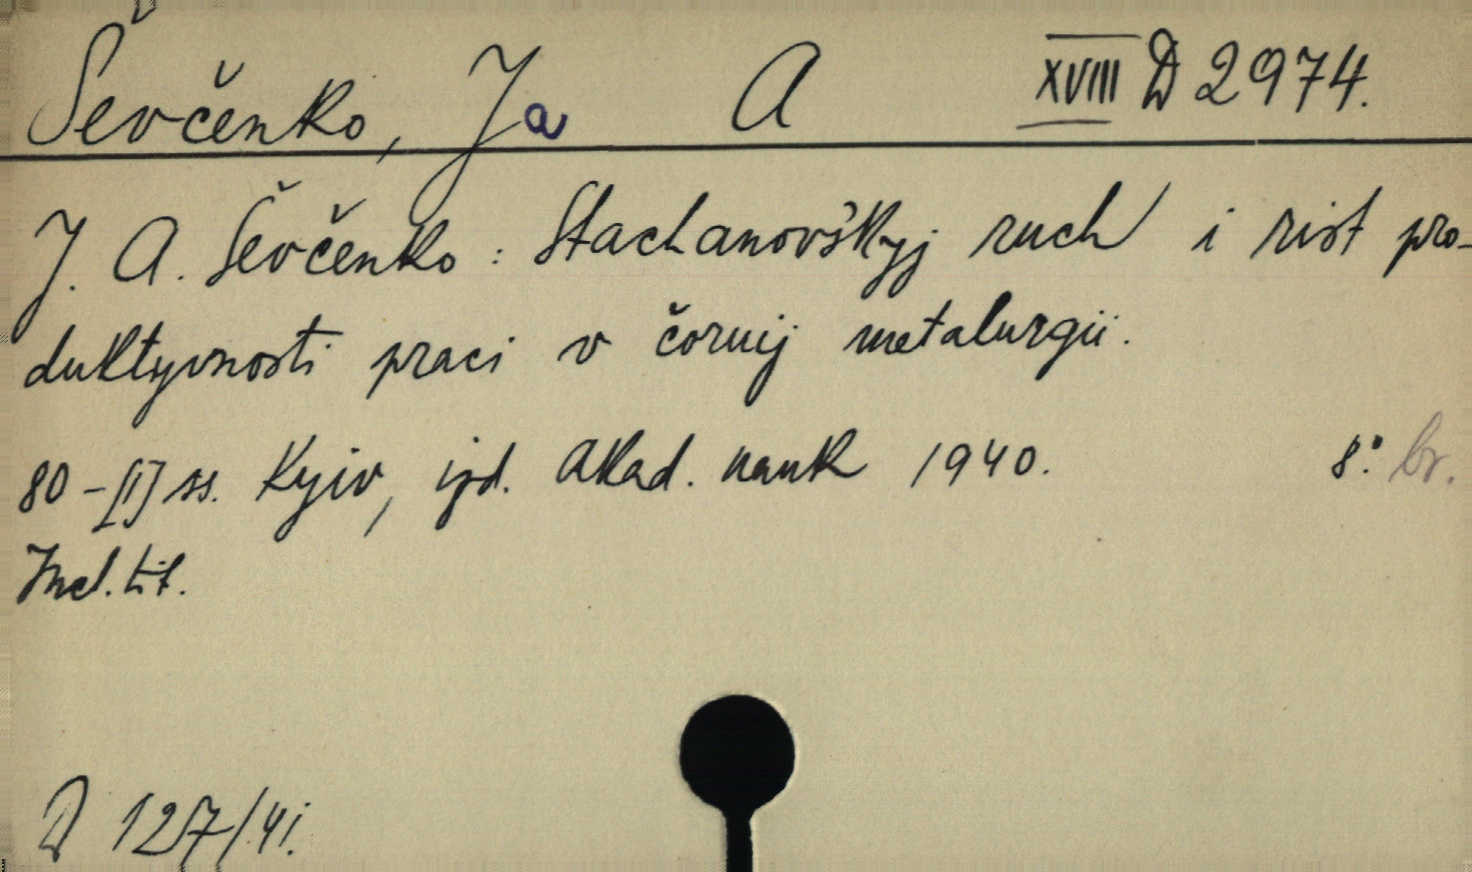 Ševčenko, Ja A XVIII D 2974.
J. A. Ševčenko: Stachanovśkyj ruch i rist pro-
duktyvnosti praci v čornij metalurgii.
80-[1] ss. Kyjiv, izd. Akad. nauk 1940. 8.° br.
Incl. tit.
D 127/41.